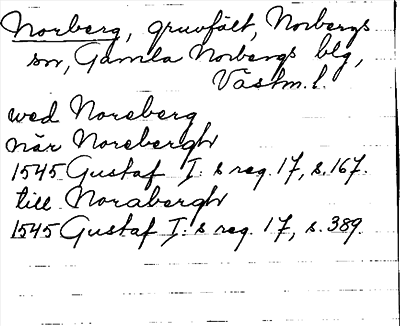 Norberg, gruvfält, Norbergs
sn, Gamla Norbergs blg,
Västm. l.
wed Noreberg
når Norebergh
1545 Gustaf I:s reg. 17, s. 167.
till Norabergh
1545 Gustaf I:s reg. 17, s. 389.